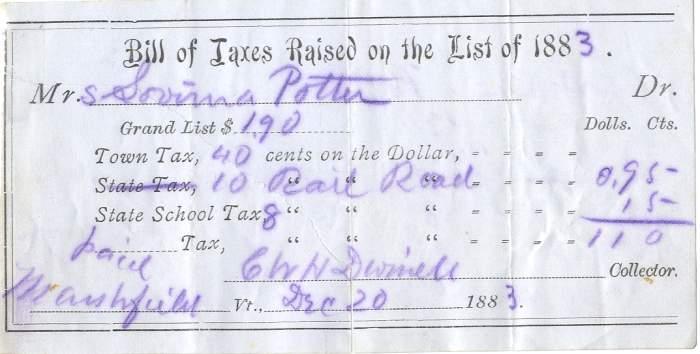 Bill of Taxes Raised on the List of 1883.
Mrs Sovina Potter Dr.
Grand List $ 1,90 Dolls. Cts.
Town Tax, 40 cents on the Dollar, = = = =
State Tax, 10 Rail Road = = = = 0,95
State School Tax 8 “ “ “ = = = = 15
paid Tax, “ “ “ = = = = 110
C W H Dwinell Collector.
Marshfield Vt., Dec 20 1883.